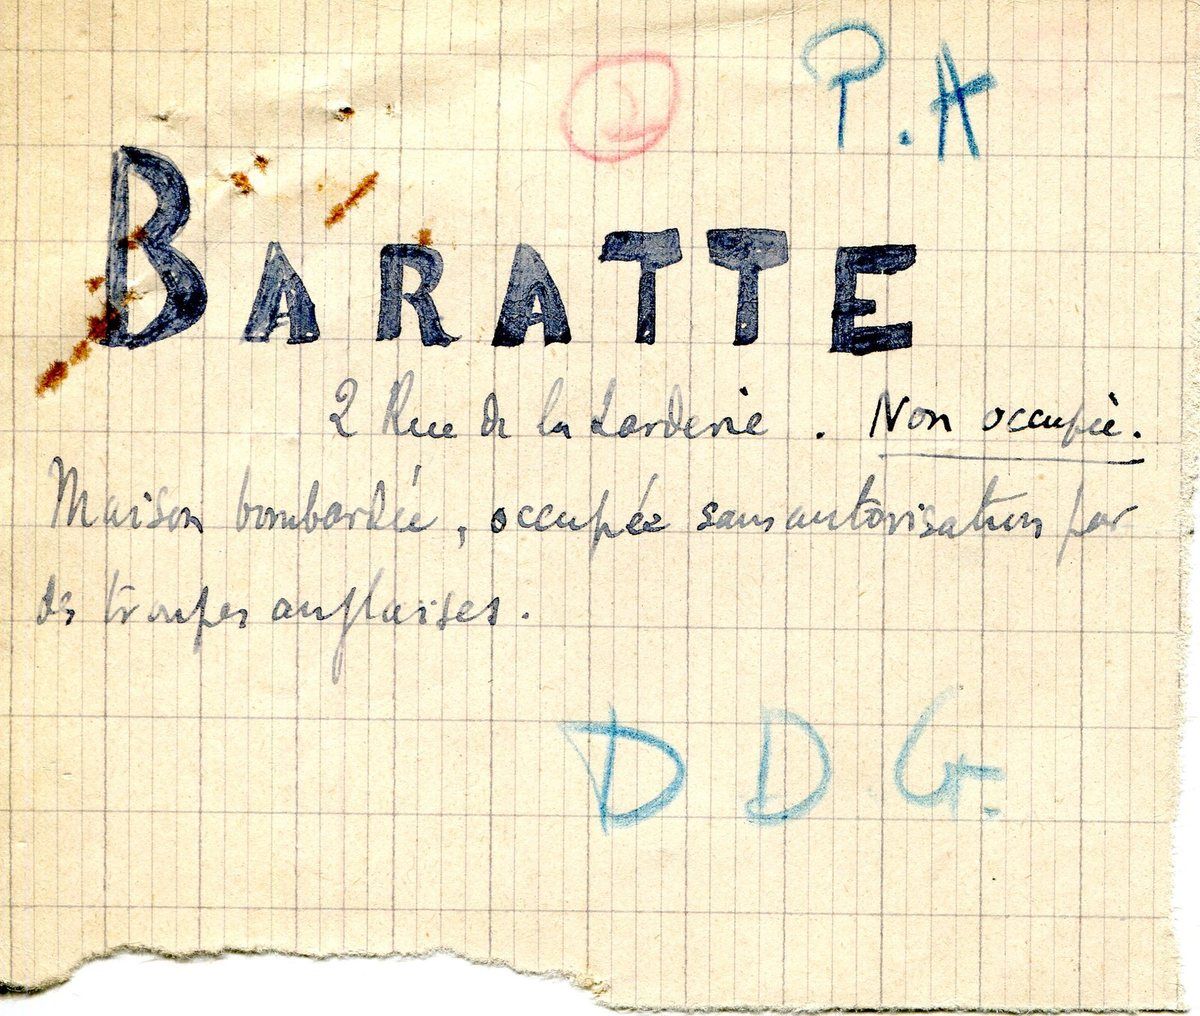 P.A
BARATTE
2 Rue de la Larderie . Non occupée.
Maison bombardée, occupée sans autorisation par
des troupes anglaises.
D D.G.